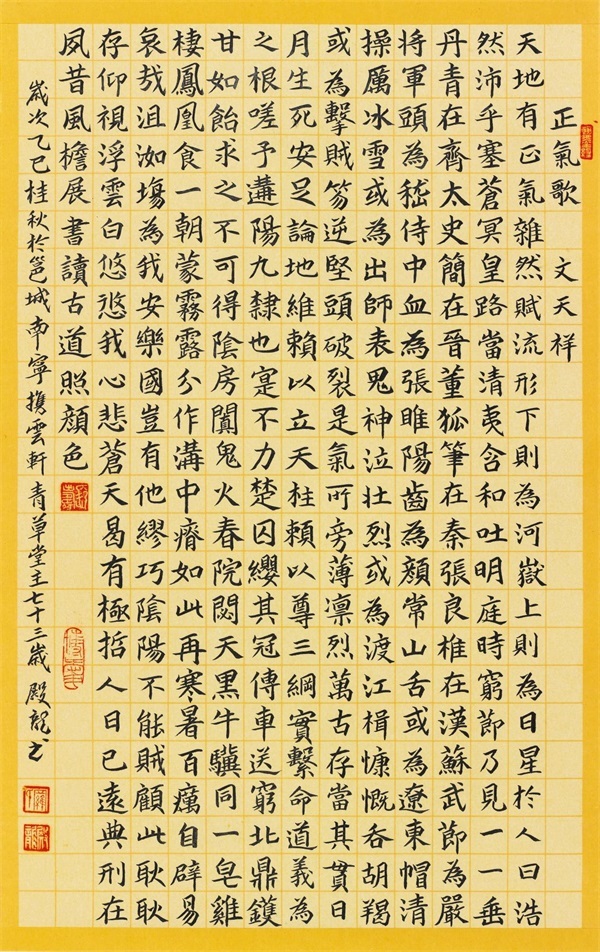 正氣歌 文天祥
天地有正氣雜然賦流形下則為河嶽上則為日星於人曰浩
然沛乎塞蒼冥皇路當清夷含和吐明庭時窮節乃見一一垂
丹青在齊太史簡在晉董狐筆在秦張良椎在漢蘇武節為嚴
將軍頭為嵇侍中血為張睢陽齒為顏常山舌或為遼東帽清
操厲冰雪或為出師表鬼神泣壯烈或為渡江楫慷慨吞胡羯
或為擊賊笏逆堅頭破裂是氣所旁薄凛烈萬古存當其貫日
月生死安足論地維賴以立天柱賴以尊三綱實繫命道義為
之根嗟予遘陽九隸也寔不力楚囚纓其冠傳車送窮北鼎鑊
甘如飴求之不可得陰房闃鬼火春院閟天黑牛驥同一皂雞
棲鳳凰食一朝蒙霧露分作溝中瘠如此再寒暑百癘自辟易
哀哉沮洳塲為我安樂國豈有他繆巧陰陽不能賊顧此耿耿
存仰視浮雲白悠悠我心悲蒼天曷有極哲人日已遠典刑在
夙昔風檐展書讀古道照顏色
歲次乙巳桂秋於邕城南寧攜雲軒青草堂主七十三歲殿龍書